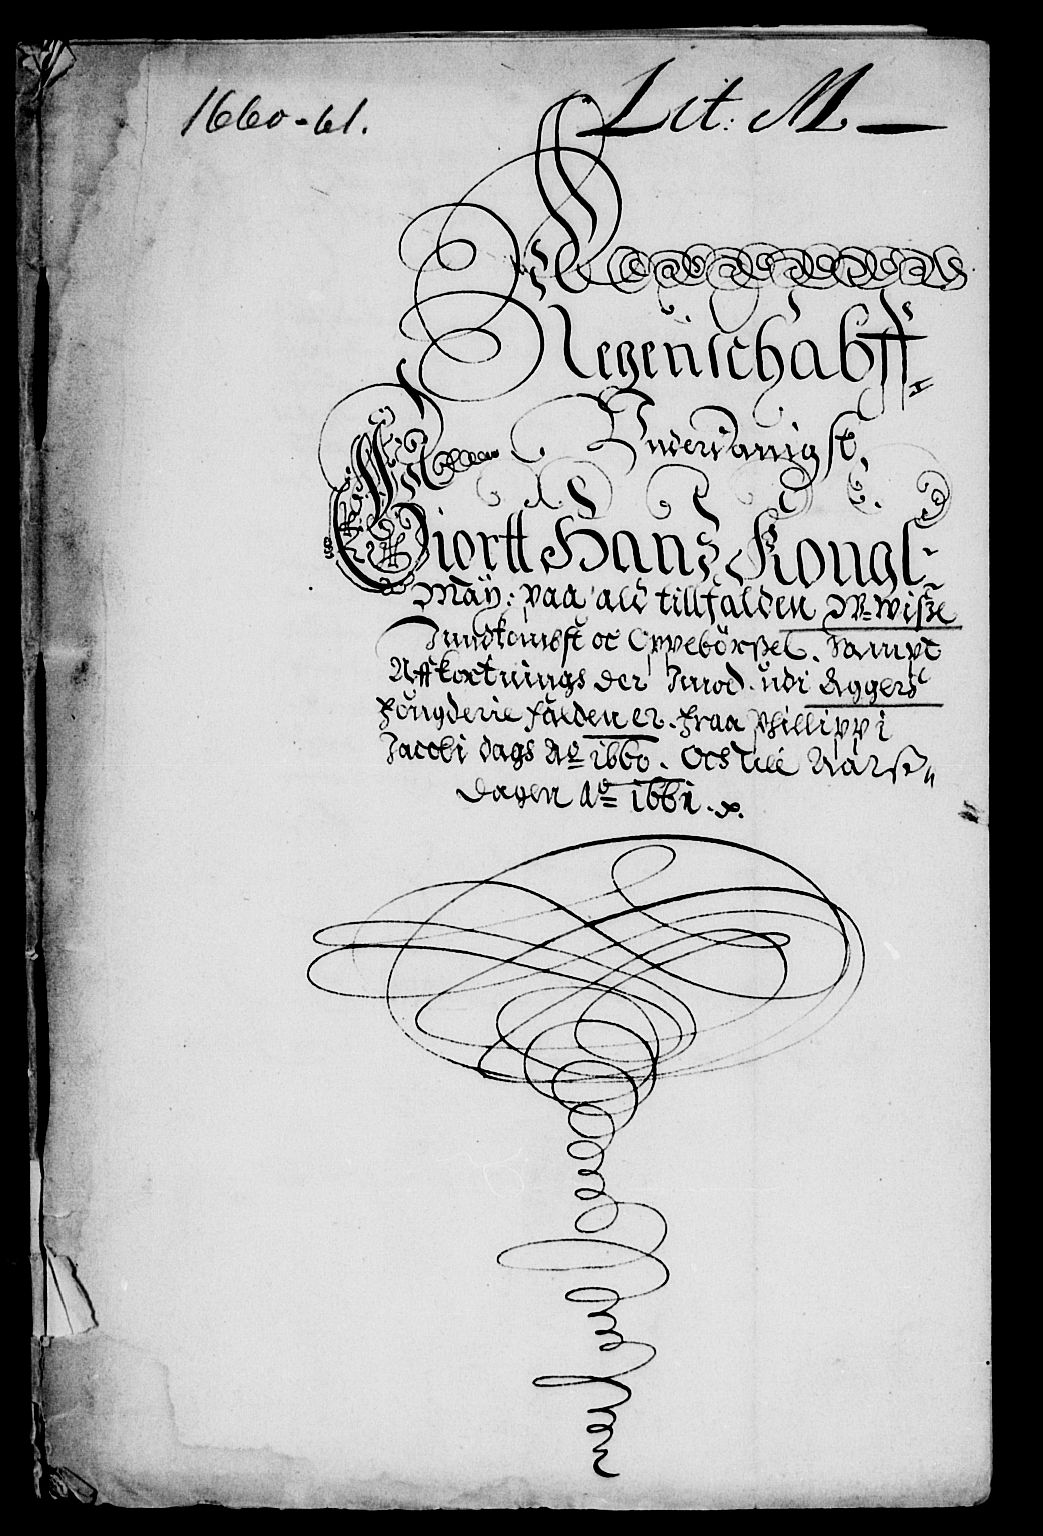 1660-61.
Lit: M
Regenschabff
Underdanigst,
Giortt Hanß Kongl:
May: paa ald tillfalden Wwisße
Inndkombst oc Oppebörßel. Sampt
Affkortnings der Imod. udi Aggers
Fougderie falden er. Fraa Phillippi
Jacobi dags Ao 1660. Och till Aars
dagen Ao 1661.